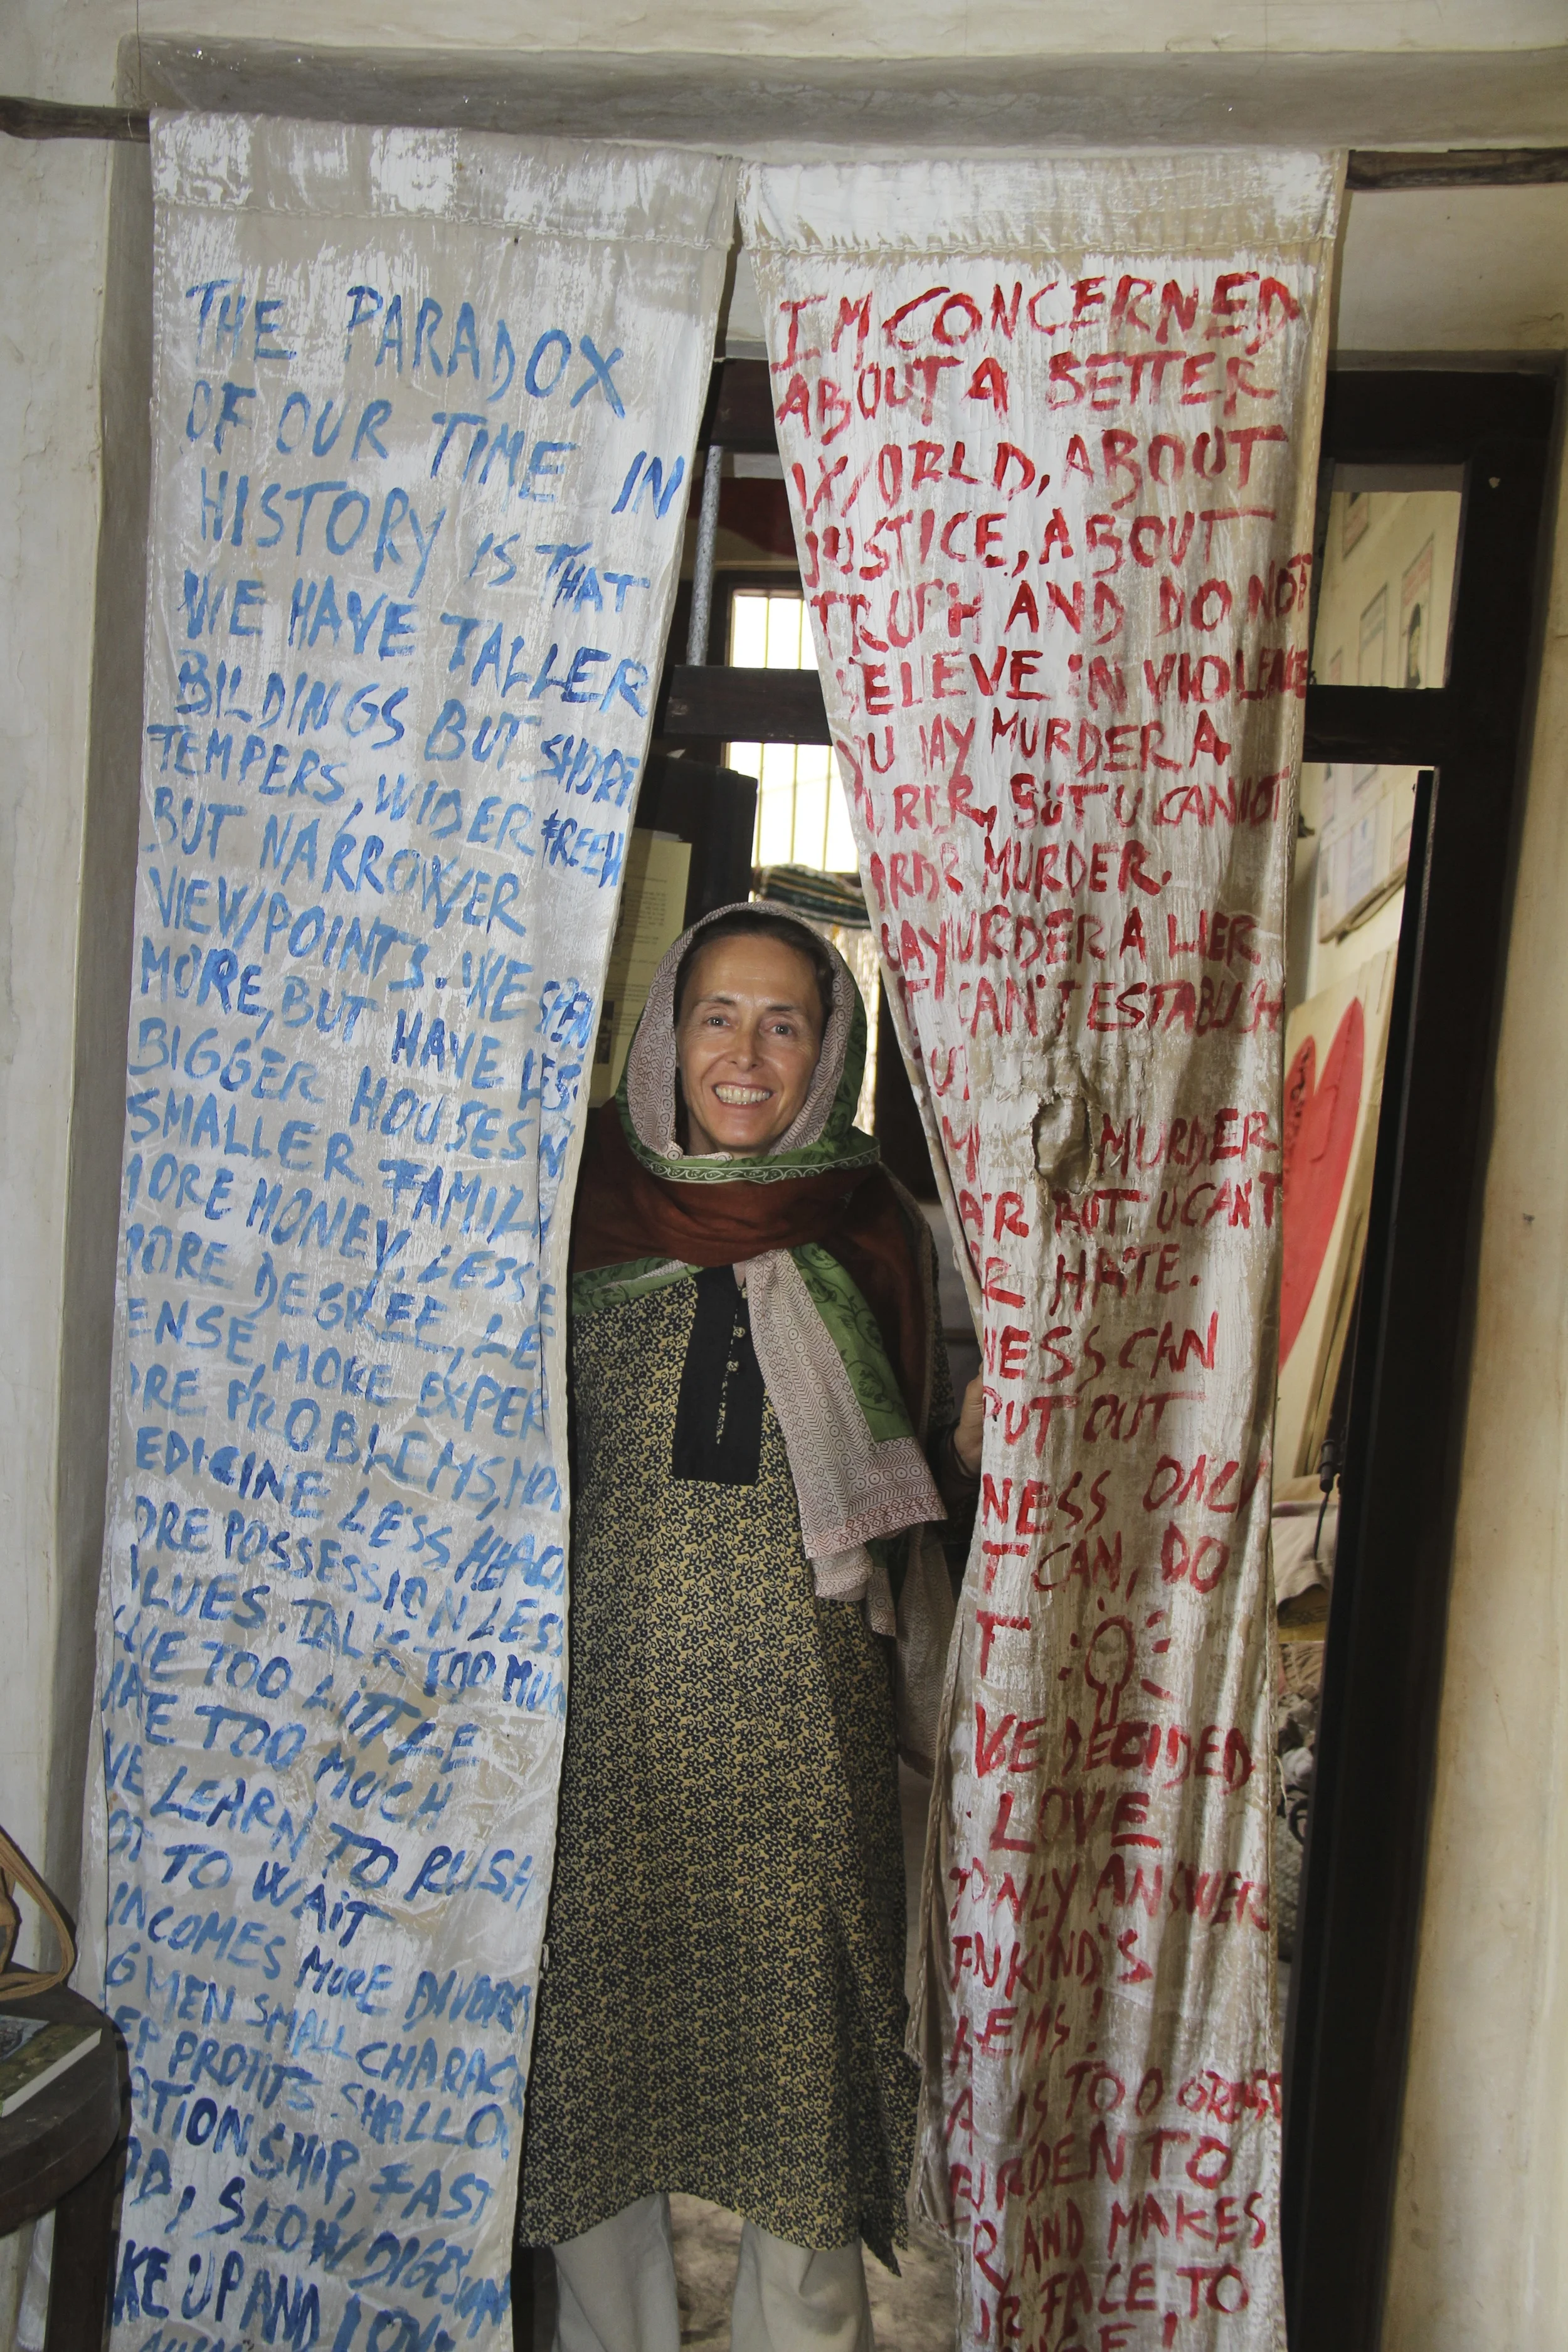 THE PARADOX
OF OUR TIME IN
HISTORY IS THAT
WE HAVE TALLER
BILDINGS BUT SHORE
TEMPERS, WIDER FREEW
BUT NARROWER
VIEW/POINTS. WE SPEN
MORE, BUT HAVE LESS
BIGGER HOUSES N
SMALLER FAMIL
MORE MONEY. LESS
MORE DEGREE, LE
ENSE, MORE EXPER
ORE PROBLEMS, MO
EDICINE LESS
ORE POSSESSION LESS
LUES. TALK TOO MUC
VE TOO LITTLE
HATE TOO MUCH
VE LEARN TO RUSH
OT TO WAIT
INCOMES MORE
G MEN SMALL CHARAC
EP PROTITS SHALLO
ATIONSHIP, FAST
D, SLOW
KE UP AND
I'M CONCERNED
ABOUT A BETTER
WORLD, ABOUT
JUSTICE, ABOUT
TRUPH AND DO NOT
BELEVE IN VIOLENCE
OU MAY MURDER A
URDR, BUT U CANNOT
RDR MURDER.
MAY URDER A LIER
CAN'T ESTABLISH
MURDER
ATR BUT U CANT
R HATE.
NESS CAN
PUT OUT
NESS ONLY
T CAN, DO
T
VE DECIDED
LOVE
ONLY ANSWER
NKIND'S
LEMS!
A IS TOO
RDEN TO
R, AND MAKES
R FACE, TO